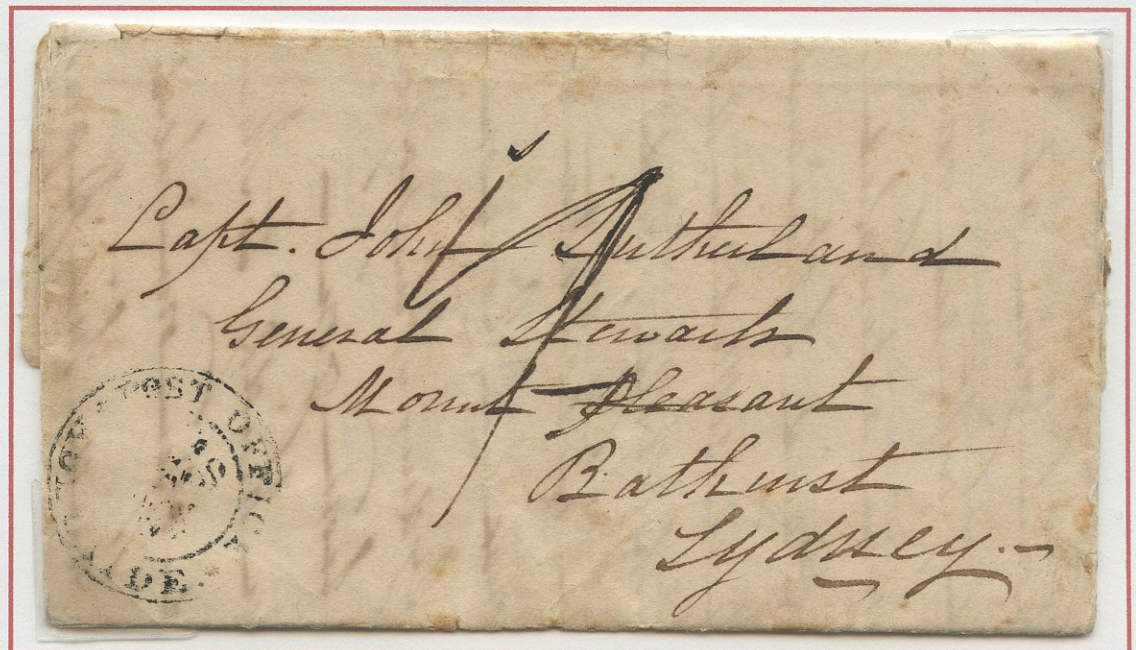 Capt. John Sutherland
General Stewarts
Mount Pleasant
Bathurst
Sydney.-
POST OFFICE